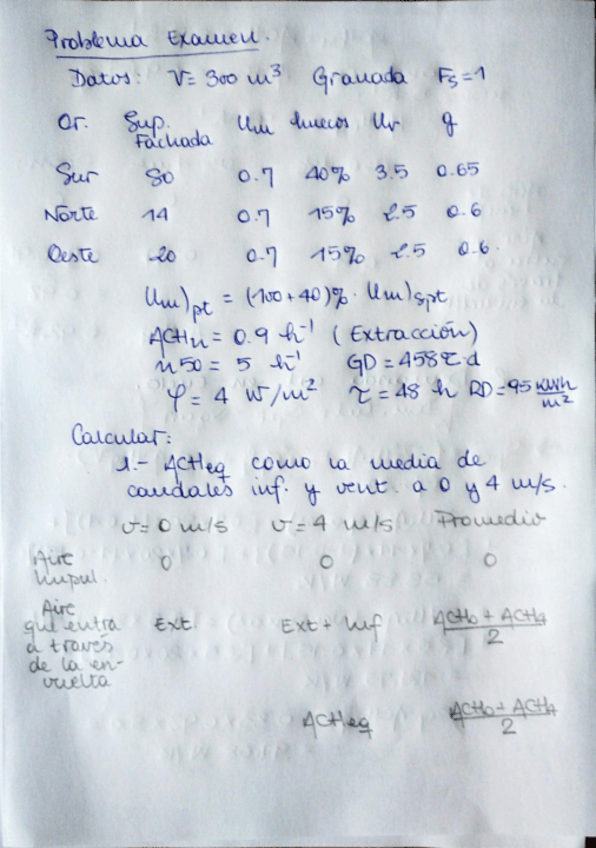 Problema Examen.
Datos: V= 300 m³ Granada Fs=1
Or. Sup. Fachada Um huecos Uv g
Sur 80 0.7 40% 3.5 0.65
Norte 14 0.7 15% 2.5 0.6
Oeste 20 0.7 15% 2.5 0.6.
Um)pt = (100+40)% · Um)spt
ACHn = 0.9 h⁻¹ (Extracción)
n50 = 5 h⁻¹ GD = 458 ℃·d
φ = 4 W/m² τ = 48 h RD=95 kWh/m²
Calcular:
1.- ACHeq como la media de
caudales inf. y vent. a 0 y 4 m/s.
v= 0 m/s v= 4 m/s Promedio
Aire
Impul. 0 0 0
Aire
que entra Ext Ext + Inf (ACH0 + ACH4)/2
a través
de la en-
vuelta
ACHeq (ACH0 + ACH4)/2